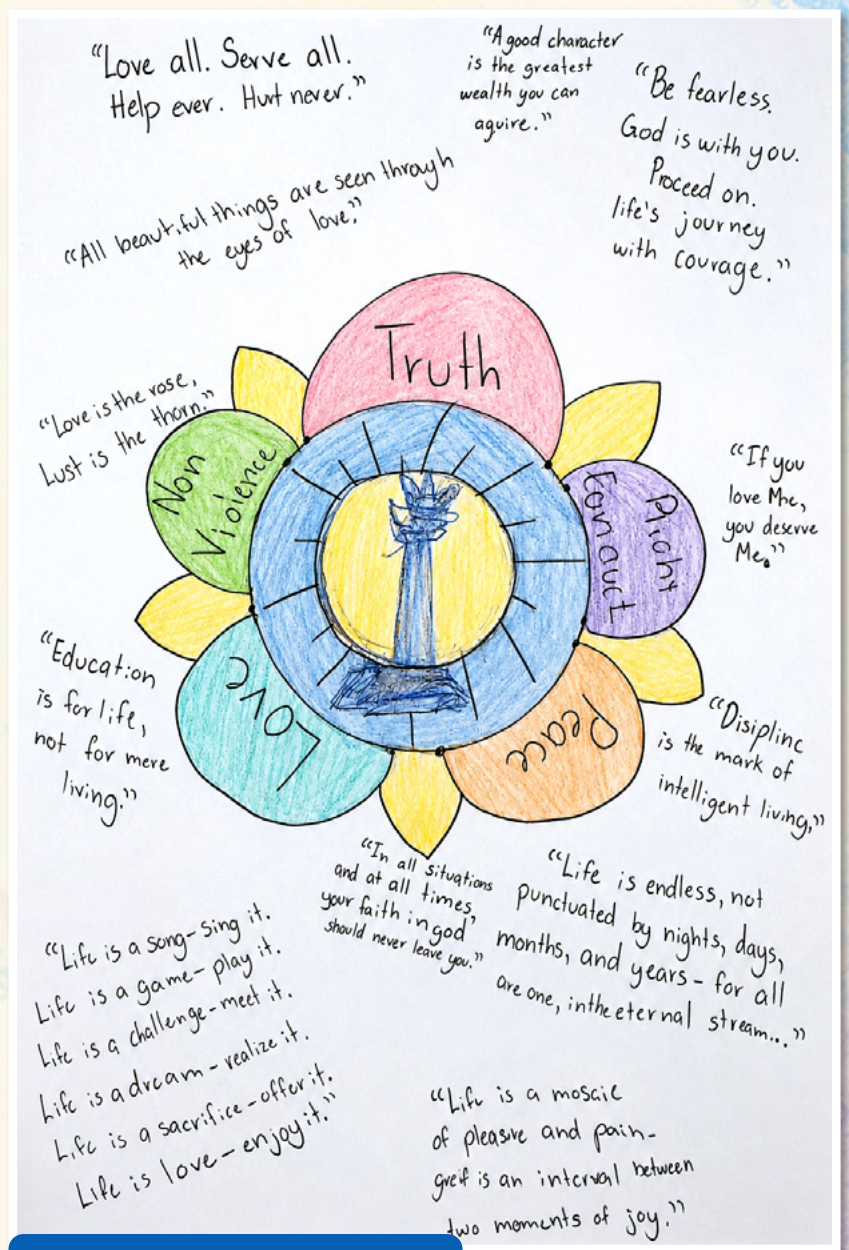 “Love all. Serve all.
Help ever. Hurt never.”
“A good character
is the greatest
wealth you can
aquire.”
“Be fearless.
God is with you.
Proceed on.
life's journey
with courage.”
“All beautiful things are seen through
the eyes of love.”
Truth
“Love is the rose,
Lust is the thorn.”
Non
Violence
Right
Conduct
“If you
love Me,
you deserve
Me.”
Love
Peace
“Education
is for life,
not for mere
living.”
“Disipline
is the mark of
intelligent living.”
“In all situations
and at all times,
your faith in god
should never leave you.”
“Life is endless, not
punctuated by nights, days,
months, and years - for all
are one, in the eternal stream...”
“Life is a song - sing it.
Life is a game - play it.
Life is a challenge - meet it.
Life is a dream - realize it.
Life is a sacrifice - offer it.
Life is love - enjoy it.”
“Life is a mosaic
of pleasure and pain -
greif is an interval between
two moments of joy.”